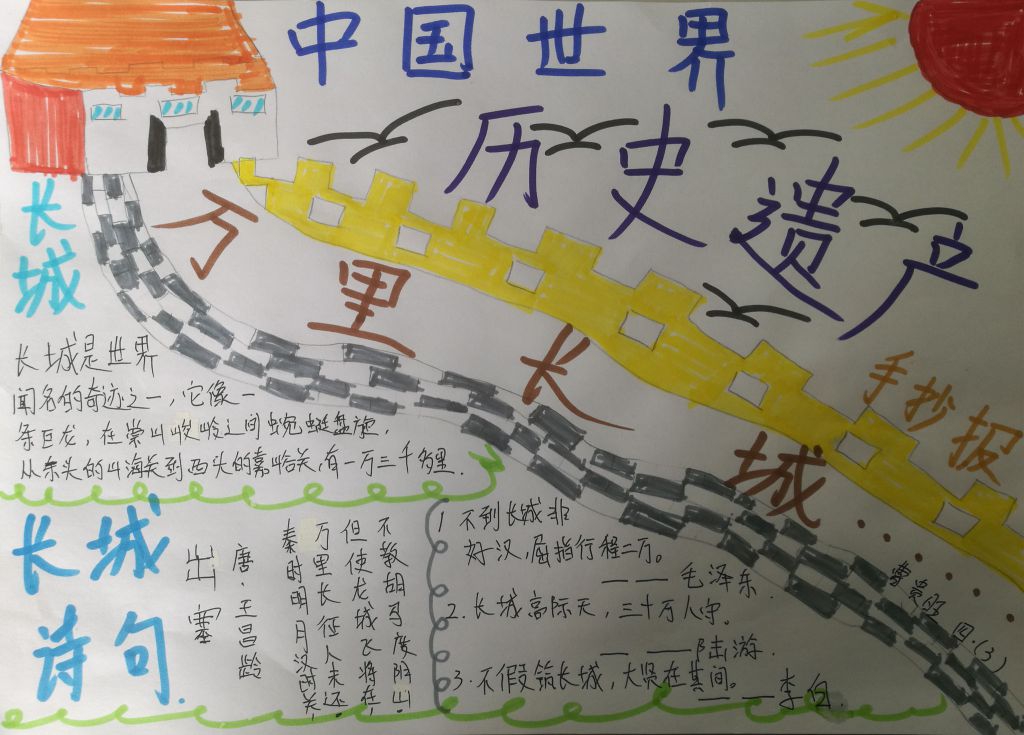 中国世界
历史遗产
手抄报
万里长城
长城
长城是世界
闻名的奇迹之一，它像一
条巨龙，在崇山峻岭之间蜿蜒盘旋，
从东头的山海关到西头的嘉峪关，有一万三千多里．
长城
诗句．
出塞
唐·王昌龄
秦时明月汉时关，
万里长征人未还．
但使龙城飞将在，
不教胡马度阴山．
1 不到长城非
好汉，屈指行程二万。
———毛泽东．
2.长城高际天，三十万人守。
———陆游．
3.不假筑长城，大贤在其间。
———李白．
四.(3)